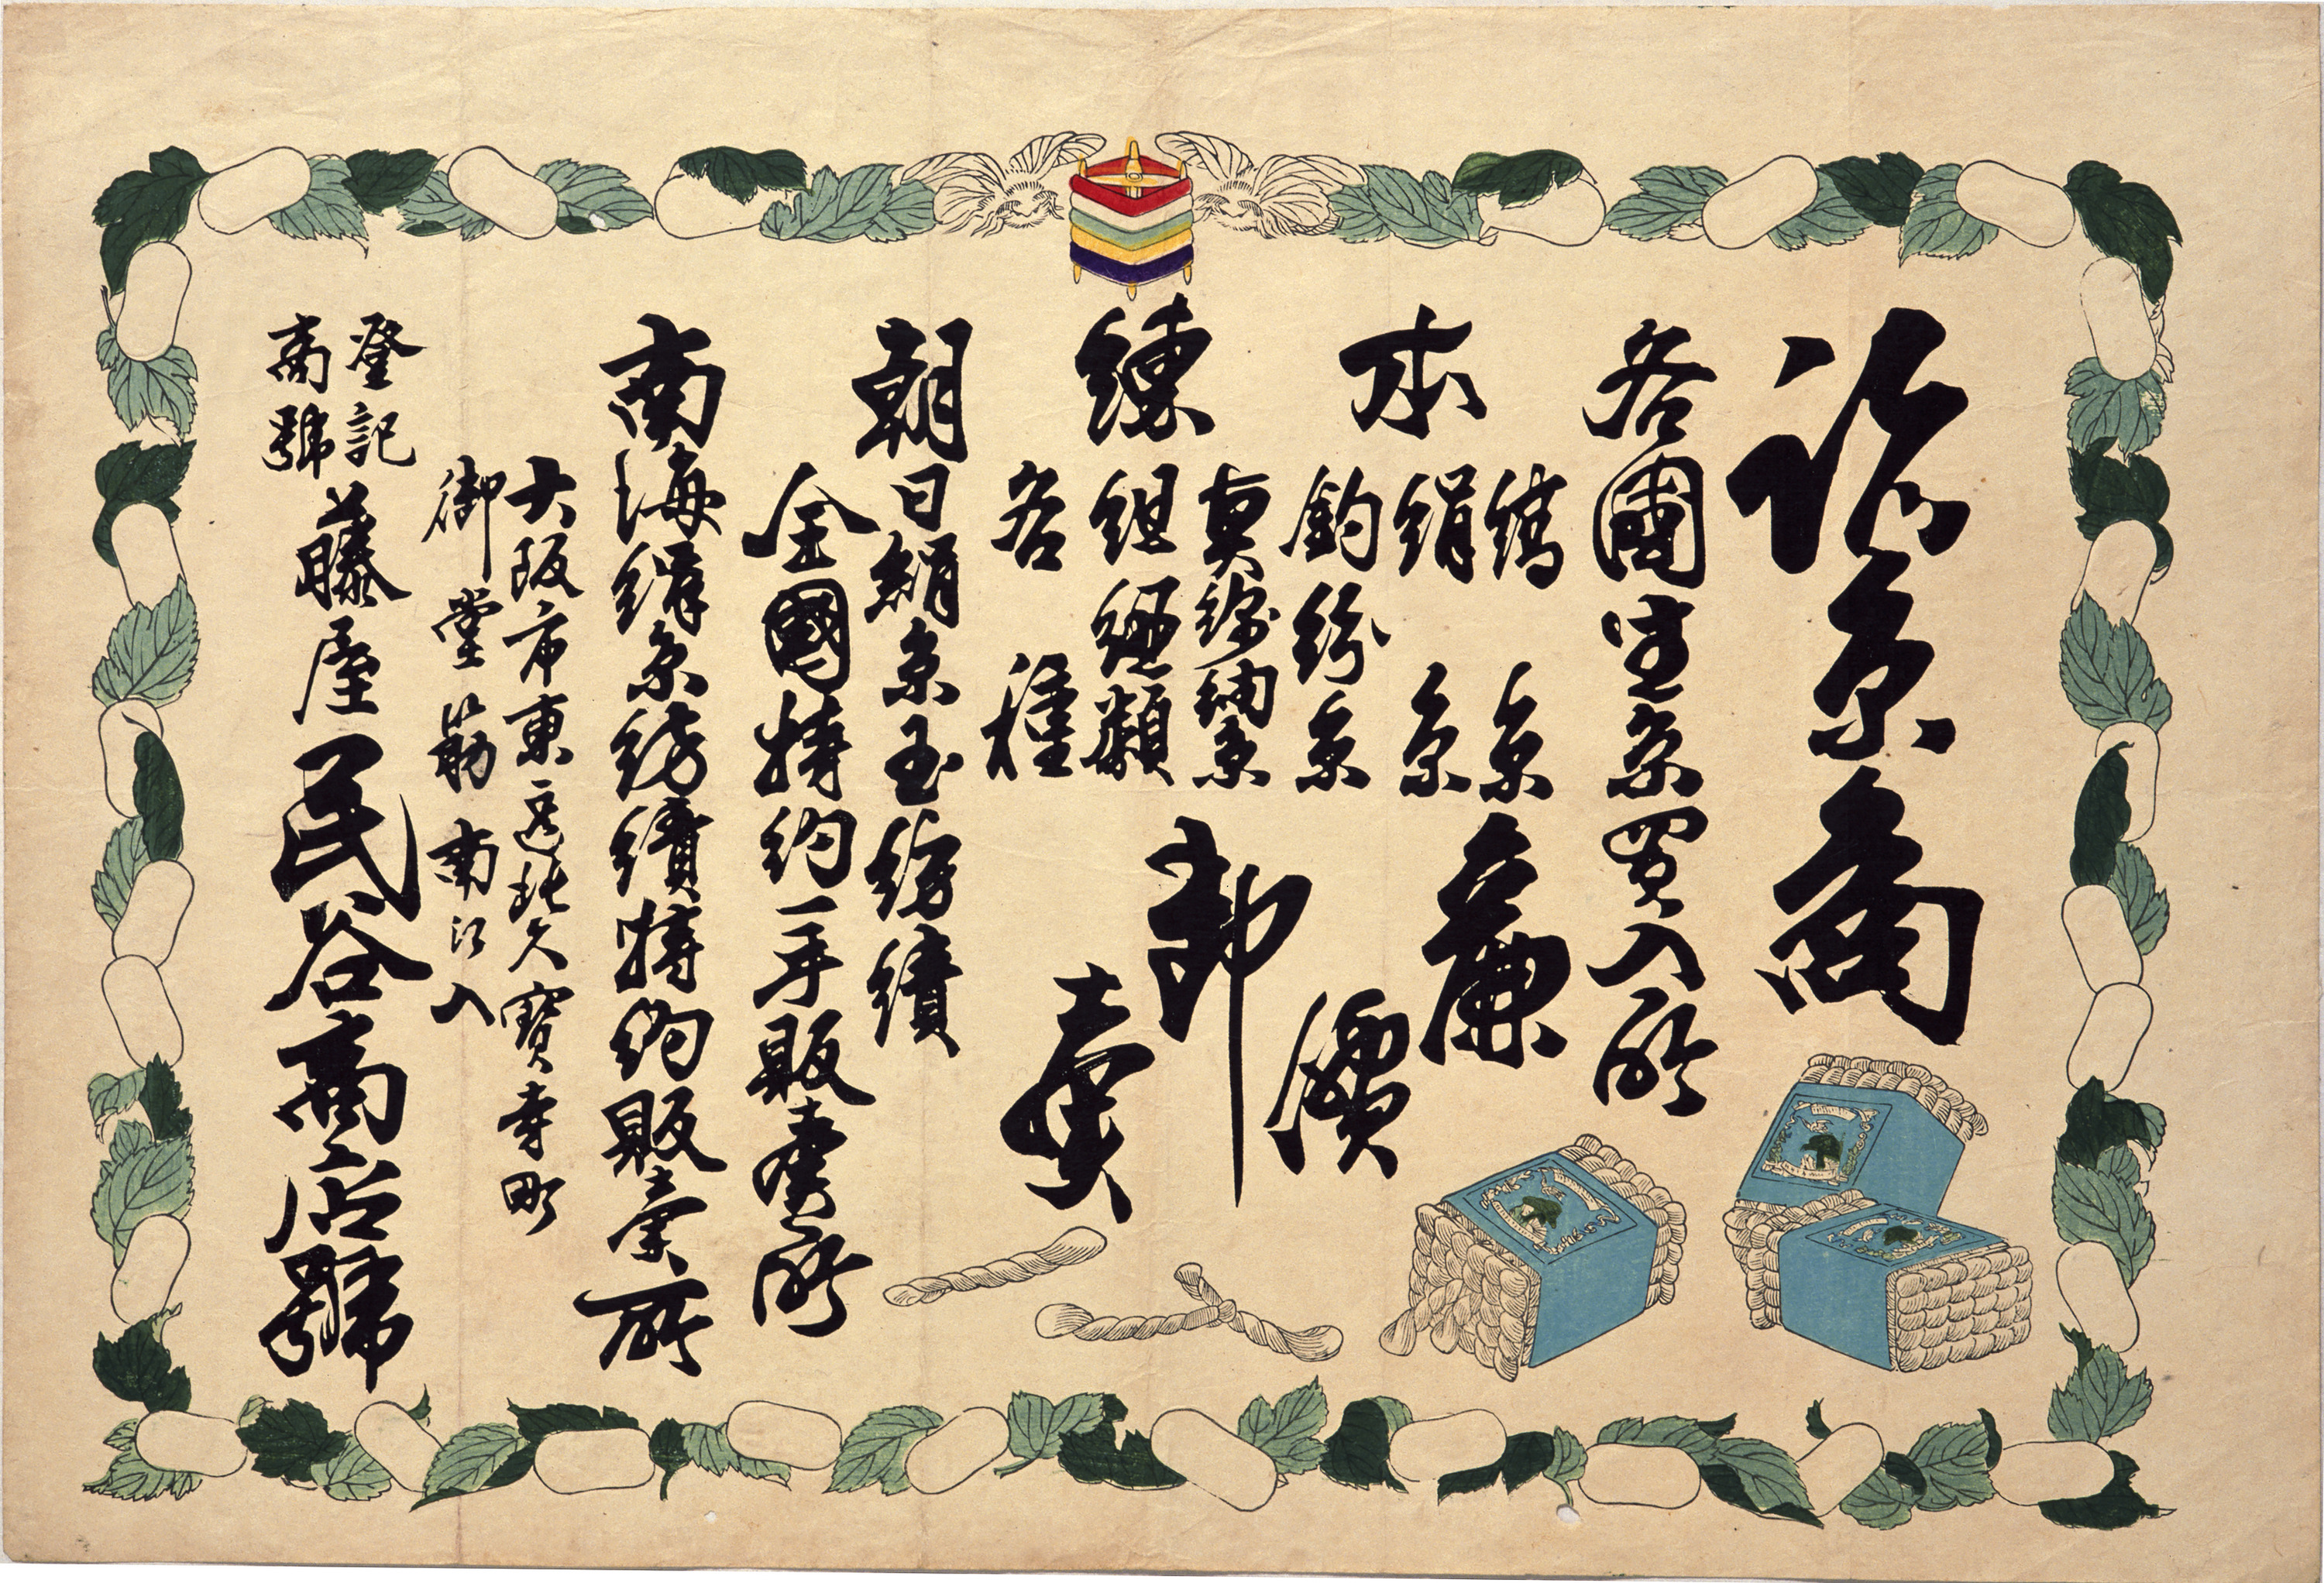 諸糸商
各國生糸買入所
本
縞糸
絹糸
釣糸
練
糸
組紐類
各種
廉價
卸賣
朝日絹糸玉紡績
全國特約一手販賣所
南海絹糸紡績特約販賣所
大阪市東區北久寶寺町
御堂筋南江入
登記
商號
藤屋民谷商店號